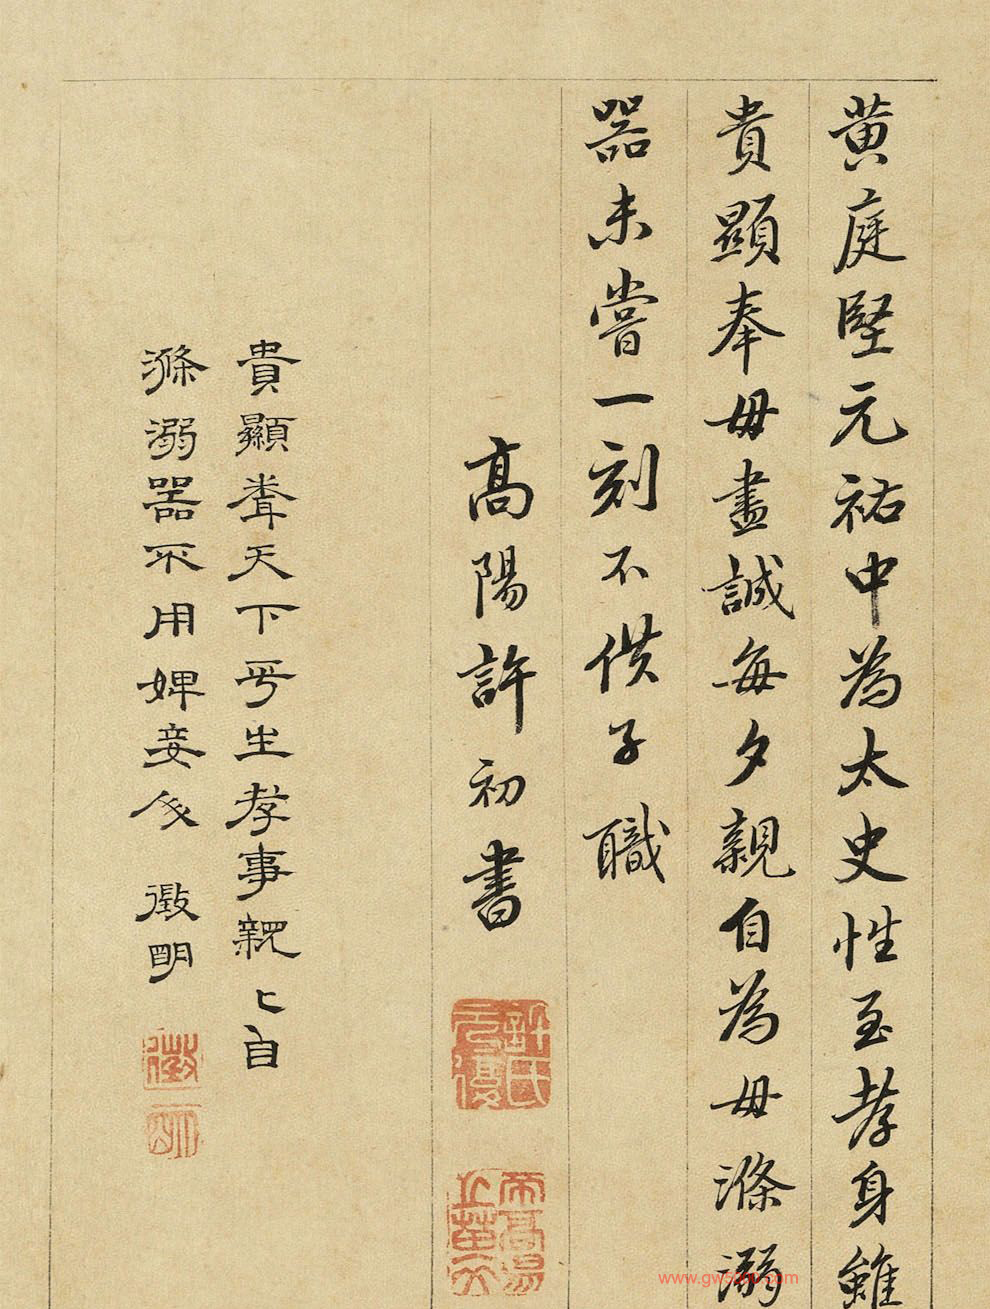 黄庭堅元祐中為太史性至孝身雖
貴顯奉母盡誠每夕親自為母滌溺
器未嘗一刻不供子職
高陽許初書
許氏元復
貴顯聞天下平生孝事親㇒自
滌溺器不用婢妾人
徵明
徵明